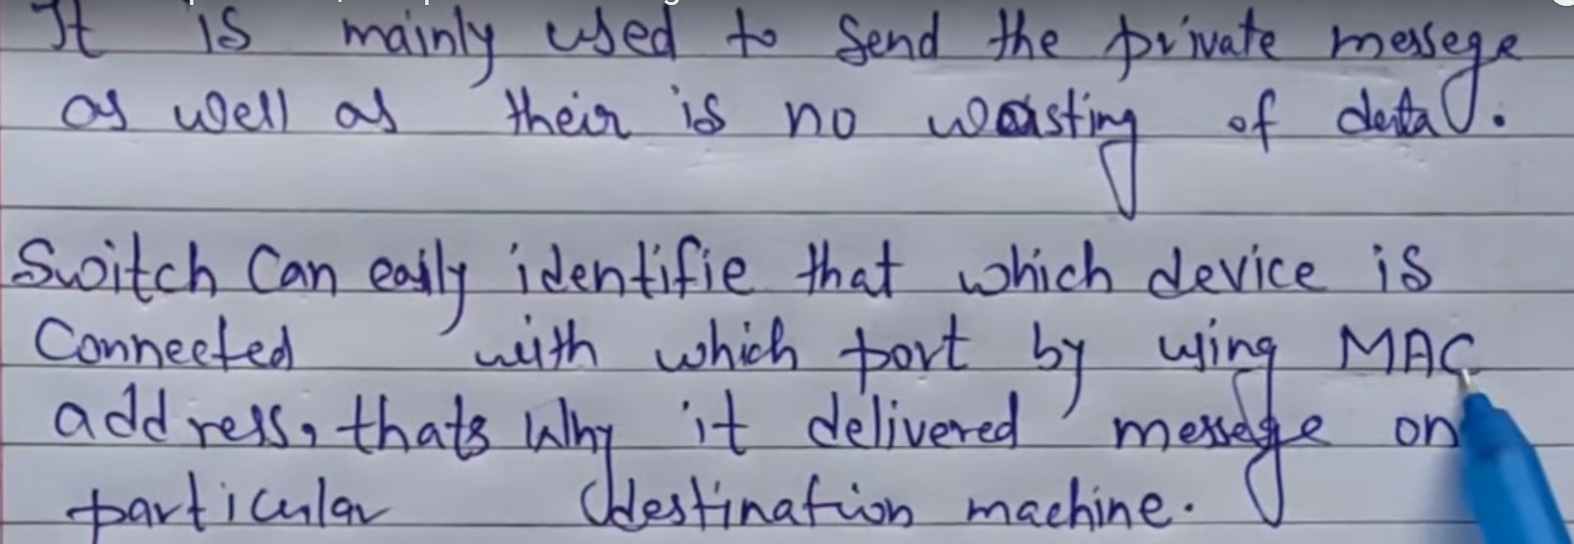 It is mainly used to send the private messege
as well as their is no wasting of data.
Switch Can easily identifie that which device is
Connected with which port by using MAC
address, thats Why it delivered messege on
particular destination machine.